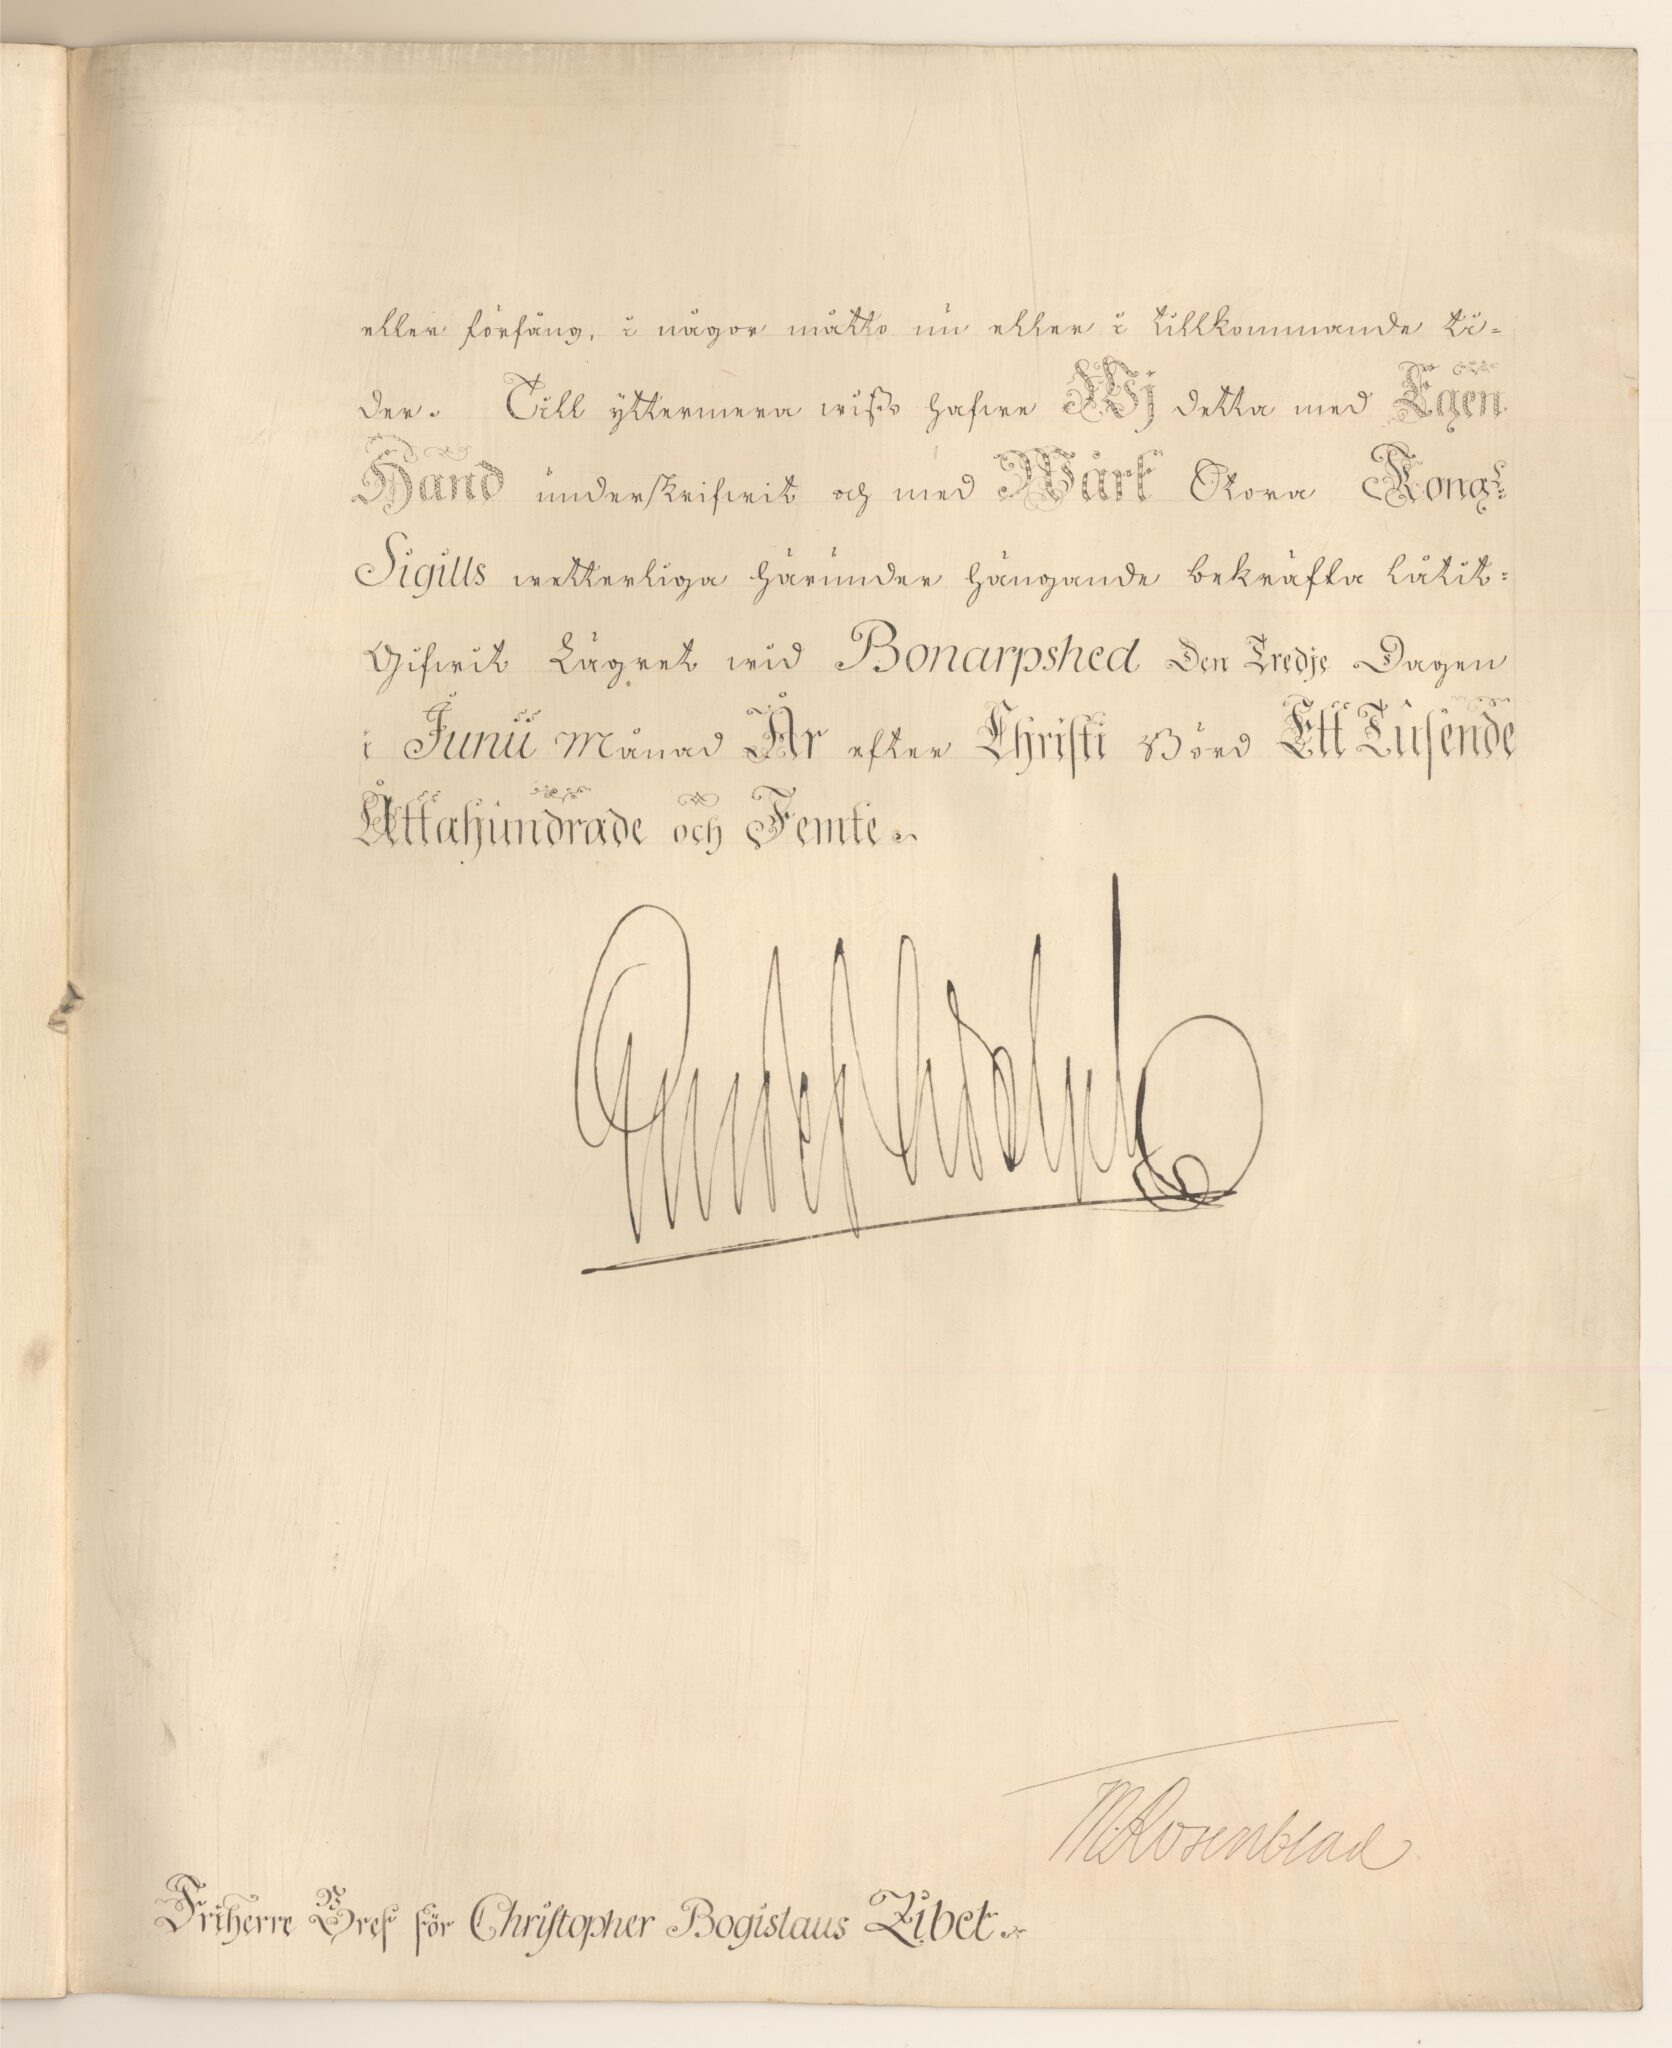 eller förfång, i någor måtto nu eller i tillkommande ti-
der. Till yttermera wisso hafwe Wj detta med Egen
Hand underskrifwit och med Wårt Stora Kongl:
Sigills wetterliga härunder hängande bekräfta låtit:
Gifwit Lägret wid Bonarpshed Den Tredje Dagen
i Junii Månad År efter Christi Börd Ett Tusende
Åttahundrade och Femte.
Gustaf Adolph
M Rosenblad
Friherre Bref för Christopher Bogislaus Zibet.